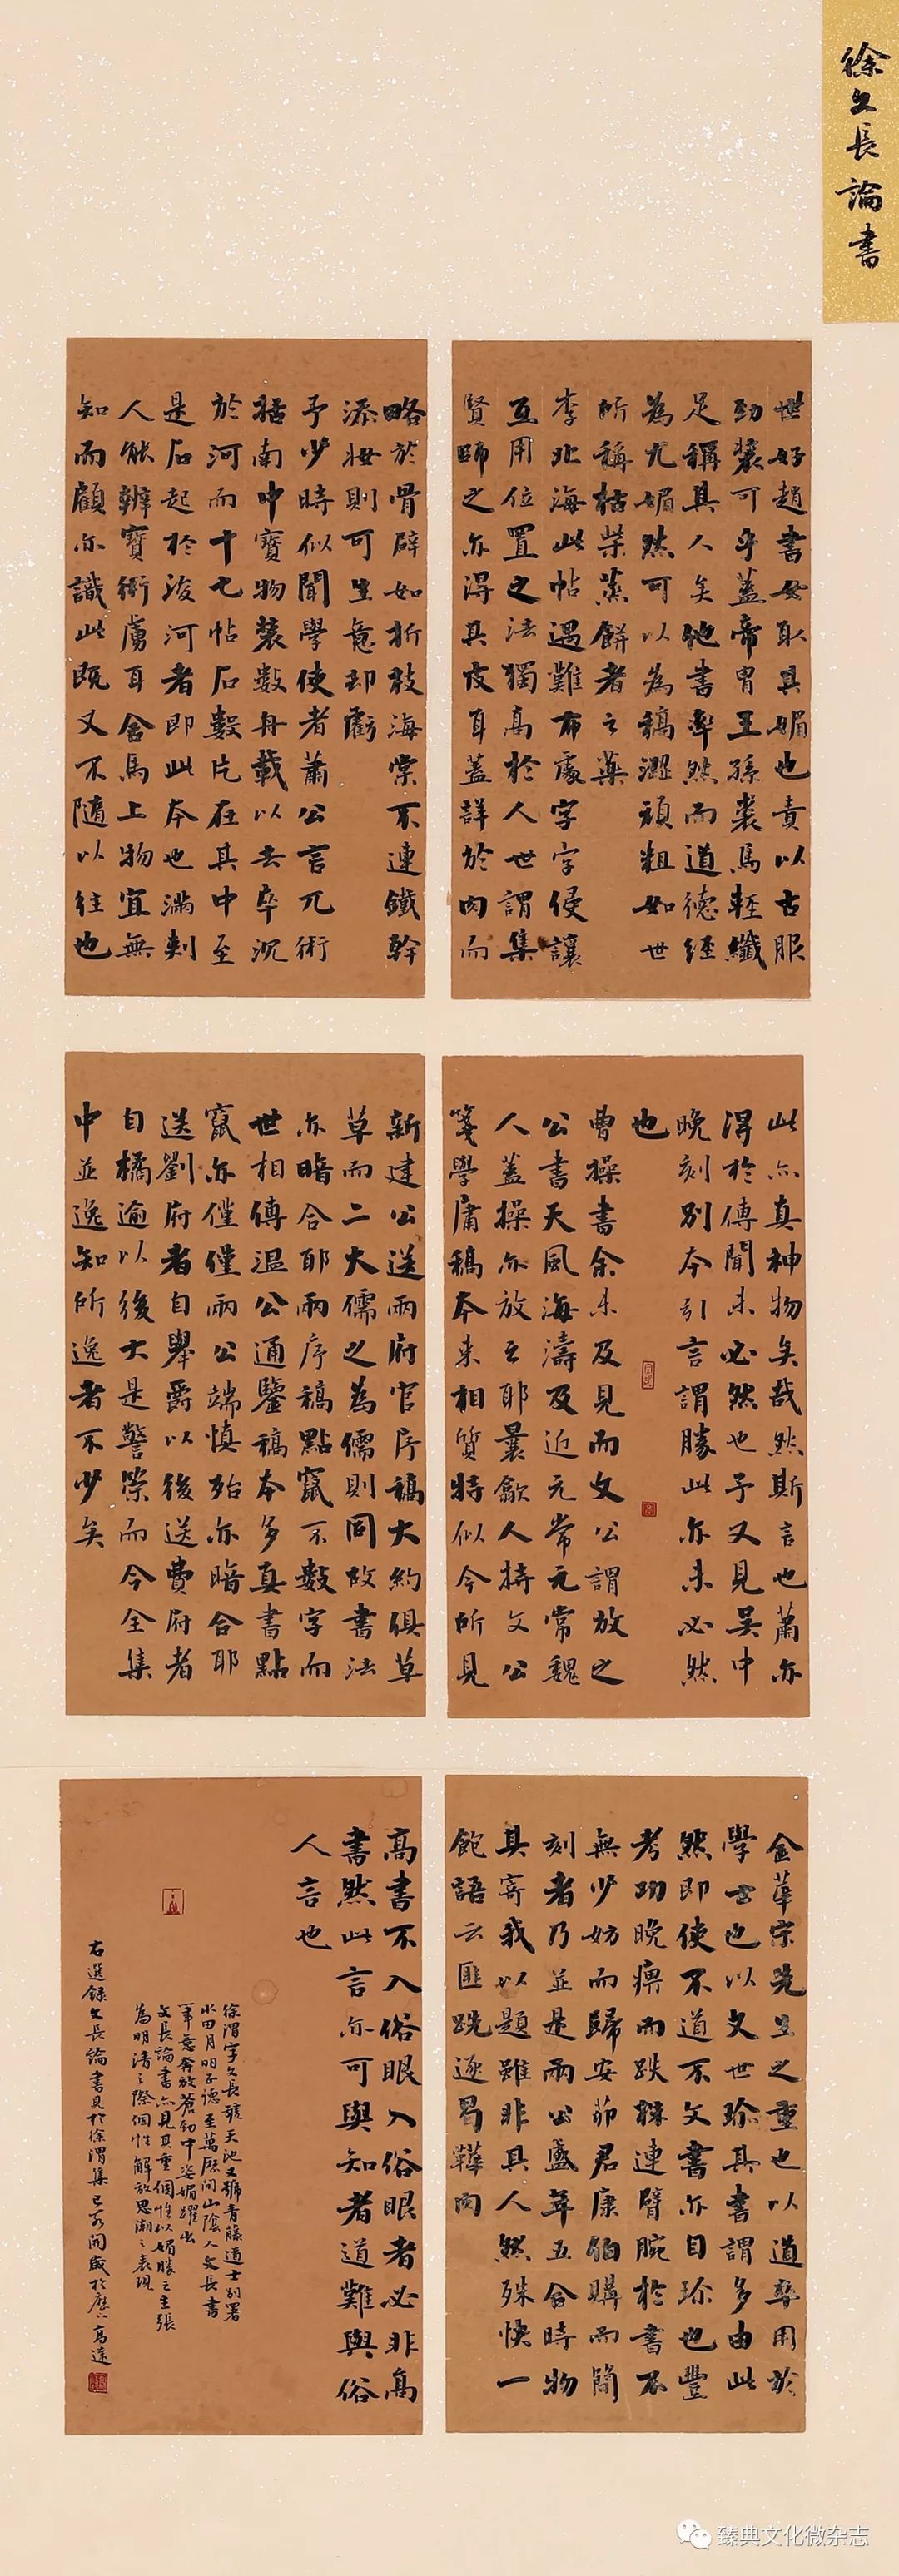 徐文長論書
世好趙書女取其媚也責以古服
勁裝可乎蓋帝胄王孫裘馬輕纖
足稱其人矣他書率然而道德經
為尤媚然可以為稿澀頑粗如世
所稱枯柴蒸餅者之藥
李北海此帖遇難布處字字侵讓
互用位置之法獨高於人世謂集
賢師之亦得其皮耳蓋詳於肉而
略於骨辟如折枝海棠不連鐵幹
添妝則可生意却虧
予少時似聞學使者蕭公言兀術
括南中寶物裝數舟載以去卒沉
於河而十七帖石數片在其中至
是石起於浚河者即此本也滿剌
人能辨寶術虜耳舍馬上物宜無
知而顧亦識此既又不隨以往也
此亦真神物矣哉然斯言也蕭亦
得於傳聞未必然也予又見吳中
晚刻別本引言謂勝此亦未必然
也
曹操書余未及見而文公謂放之
公書天風海濤及近元常元常魏
人蓋操亦放之耶曩歙人持文公
箋學庸稿本來相質特似今所見
新建公送兩府官序稿大約俱草
草而二大儒之為儒則同故書法
亦暗合耶兩序稿點竄不數字而
世相傳溫公通鑒稿本多真書點
竄亦僅僅兩公端慎殆亦暗合耶
送劉府者自舉爵以後送費府者
自橘逾以後大是警策而今全集
中並逸知所逸者不少矣
金華宋先生之重也以道卒用於
學士也以文世珍其書謂多由此
然即使不道不文書亦自珍也豐
考功晚痹而跌梯連臂腕於書不
無少妨而歸安茆君康伯購而簡
刻者乃並是兩公盛年五合時物
其寄我以題雖非其人然殊快一
飽語云匪跣逐曷韡肉
高書不入俗眼入俗眼者必非高
書然此言亦可與知者道難與俗
人言也
徐渭字文長號天池又號青藤道士別署
水田月明正德至萬曆間山陰人文長書
筆意奔放蒼勁中姿媚躍出
文長論書亦見其重個性以媚勝之主張
為明清之際個性解放思潮之表現
右選錄文長論書見於徐渭集
臻典文化微杂志